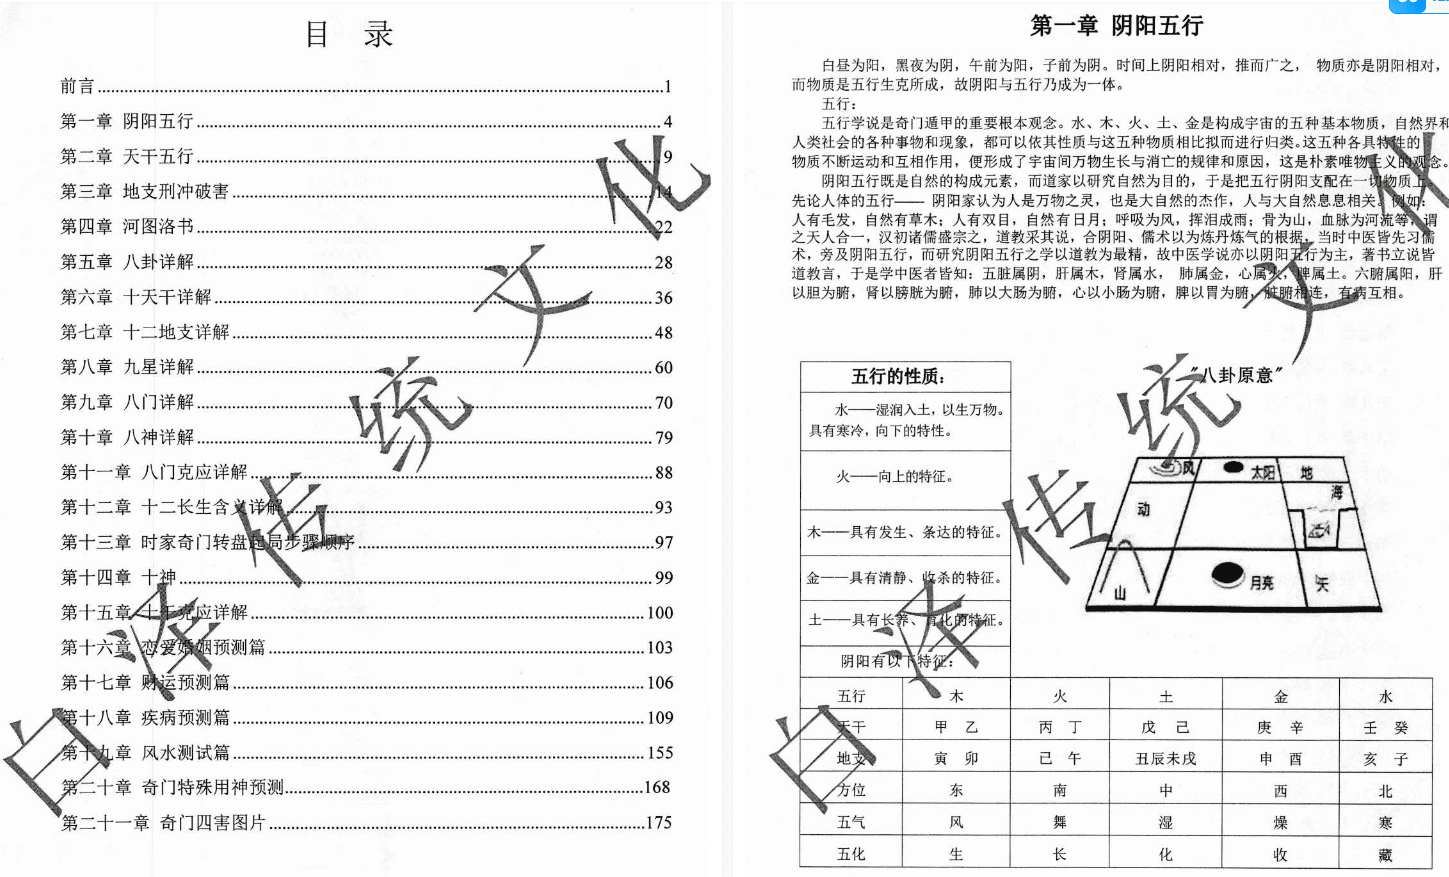 目 录
前言........1
第一章 阴阳五行........4
第二章 天干五行........9
第三章 地支刑冲破害........14
第四章 河图洛书........22
第五章 八卦详解........28
第六章 十天干详解........36
第七章 十二地支详解........48
第八章 九星详解........60
第九章 八门详解........70
第十章 八神详解........79
第十一章 八门克应详解........88
第十二章 十二长生含义详解........93
第十三章 时家奇门转盘起局步骤顺序........97
第十四章 十神........99
第十五章 十干克应详解........100
第十六章 恋爱婚姻预测篇........103
第十七章 财运预测篇........106
第十八章 疾病预测篇........109
第十九章 风水测试篇........155
第二十章 奇门特殊用神预测........168
第二十一章 奇门四害图片........175
白泽传统文化
第一章 阴阳五行
白昼为阳，黑夜为阴，午前为阳，子前为阴。时间上阴阳相对，推而广之， 物质亦是阴阳相对，
而物质是五行生克所成，故阴阳与五行乃成为一体。
五行：
五行学说是奇门遁甲的重要根本观念。水、木、火、土、金是构成宇宙的五种基本物质，自然界和
人类社会的各种事物和现象，都可以依其性质与这五种物质相比拟而进行归类。这五种各具特性的
物质不断运动和互相作用，便形成了宇宙间万物生长与消亡的规律和原因，这是朴素唯物主义的观念。
阴阳五行既是自然的构成元素，而道家以研究自然为目的，于是把五行阴阳支配在一切物质上。
先论人体的五行—— 阴阳家认为人是万物之灵，也是大自然的杰作，人与大自然息息相关。例如：
人有毛发，自然有草木；人有双目，自然有日月；呼吸为风，挥泪成雨；骨为山，血脉为河流等，谓
之天人合一，汉初诸儒盛宗之，道教采其说，合阴阳、儒术以为炼丹炼气的根据，当时中医皆先习儒
术，旁及阴阳五行，而研究阴阳五行之学以道教为最精，故中医学说亦以阴阳五行为主，著书立说皆
道教言，于是学中医者皆知：五脏属阴，肝属木，肾属水， 肺属金，心属火，脾属土。六腑属阳，肝
以胆为腑，肾以膀胱为腑，肺以大肠为腑，心以小肠为腑，脾以胃为腑，脏腑相连，有病互相。
五行的性质：
水——湿润入土，以生万物。
具有寒冷，向下的特性。
火——向上的特征。
木——具有发生、条达的特征。
金——具有清静、收杀的特征。
土——具有长养、育化的特征。
阴阳有以下特征：
"八卦原意"
风 太阳 地
动 海
山 月亮 天
五行 木 火 土 金 水
天干 甲 乙 丙 丁 戊 己 庚 辛 壬 癸
地支 寅 卯 已 午 丑辰未戌 申 酉 亥 子
方位 东 南 中 西 北
五气 风 舞 湿 燥 寒
五化 生 长 化 收 藏
白泽传统文化